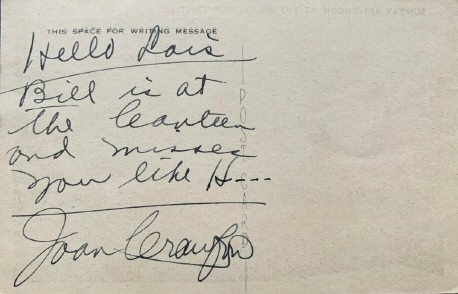 THIS SPACE FOR WRITING MESSAGE
Hello Lois
Bill is at
the Canteen
and misses
you like H---
Joan Crawford
POST CARD